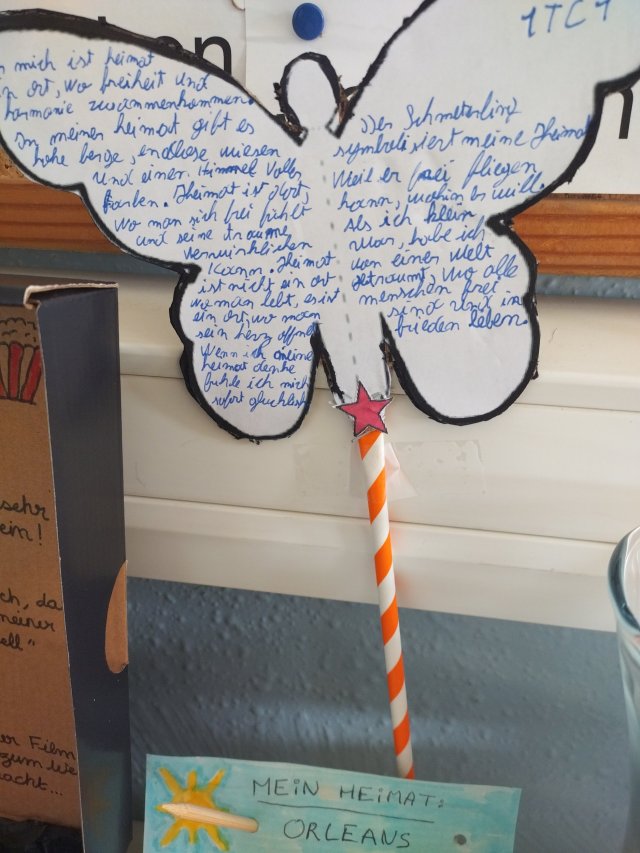 en
1TC1
mich ist heimat
ort, wo freiheit und
harmonie zusammenkommen.
In meiner heimat gibt es
hohe berge, endlose wiesen
und einen Himmel voller
Farben. Heimat ist dort,
wo man sich frei fühlt
und seine traume
verwirklichen
kann. Heimat
ist nicht ein ort
wo man lebt, es ist
ein ort, wo man
sein herz öffnet
Wenn ich meine
heimat denke
fühle ich mich
sofort glucklich
Der Schmeterling
symbolisiert meine Heimat
weil er frei fliegen
kann, wohin er will.
Als ich klein
war, habe ich
von einer Welt
getraumt, wo alle
menschen frei
sind und in
frieden leben.
sehr
ein!
ch, da
meiner
ell"
er Film
zum We
acht...
MEIN HEIMAT:
ORLEANS